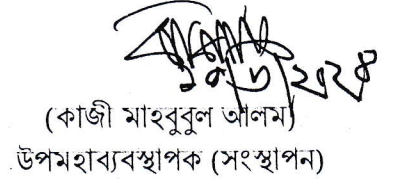 (কাজী মাহবুবুল আলম)
উপমহাব্যবস্থাপক (সংস্থাপন)